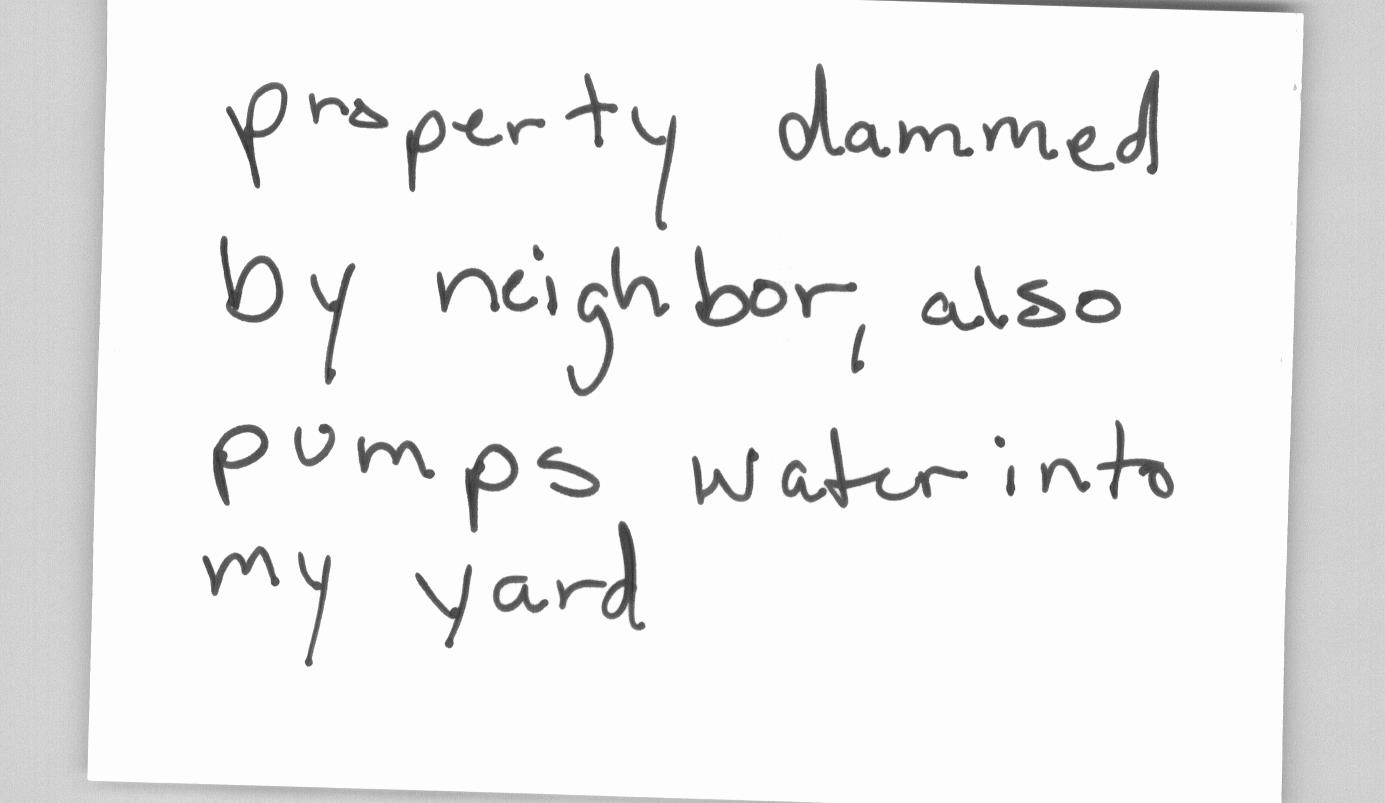 property dammed
by neighbor, also
pumps water into
my yard